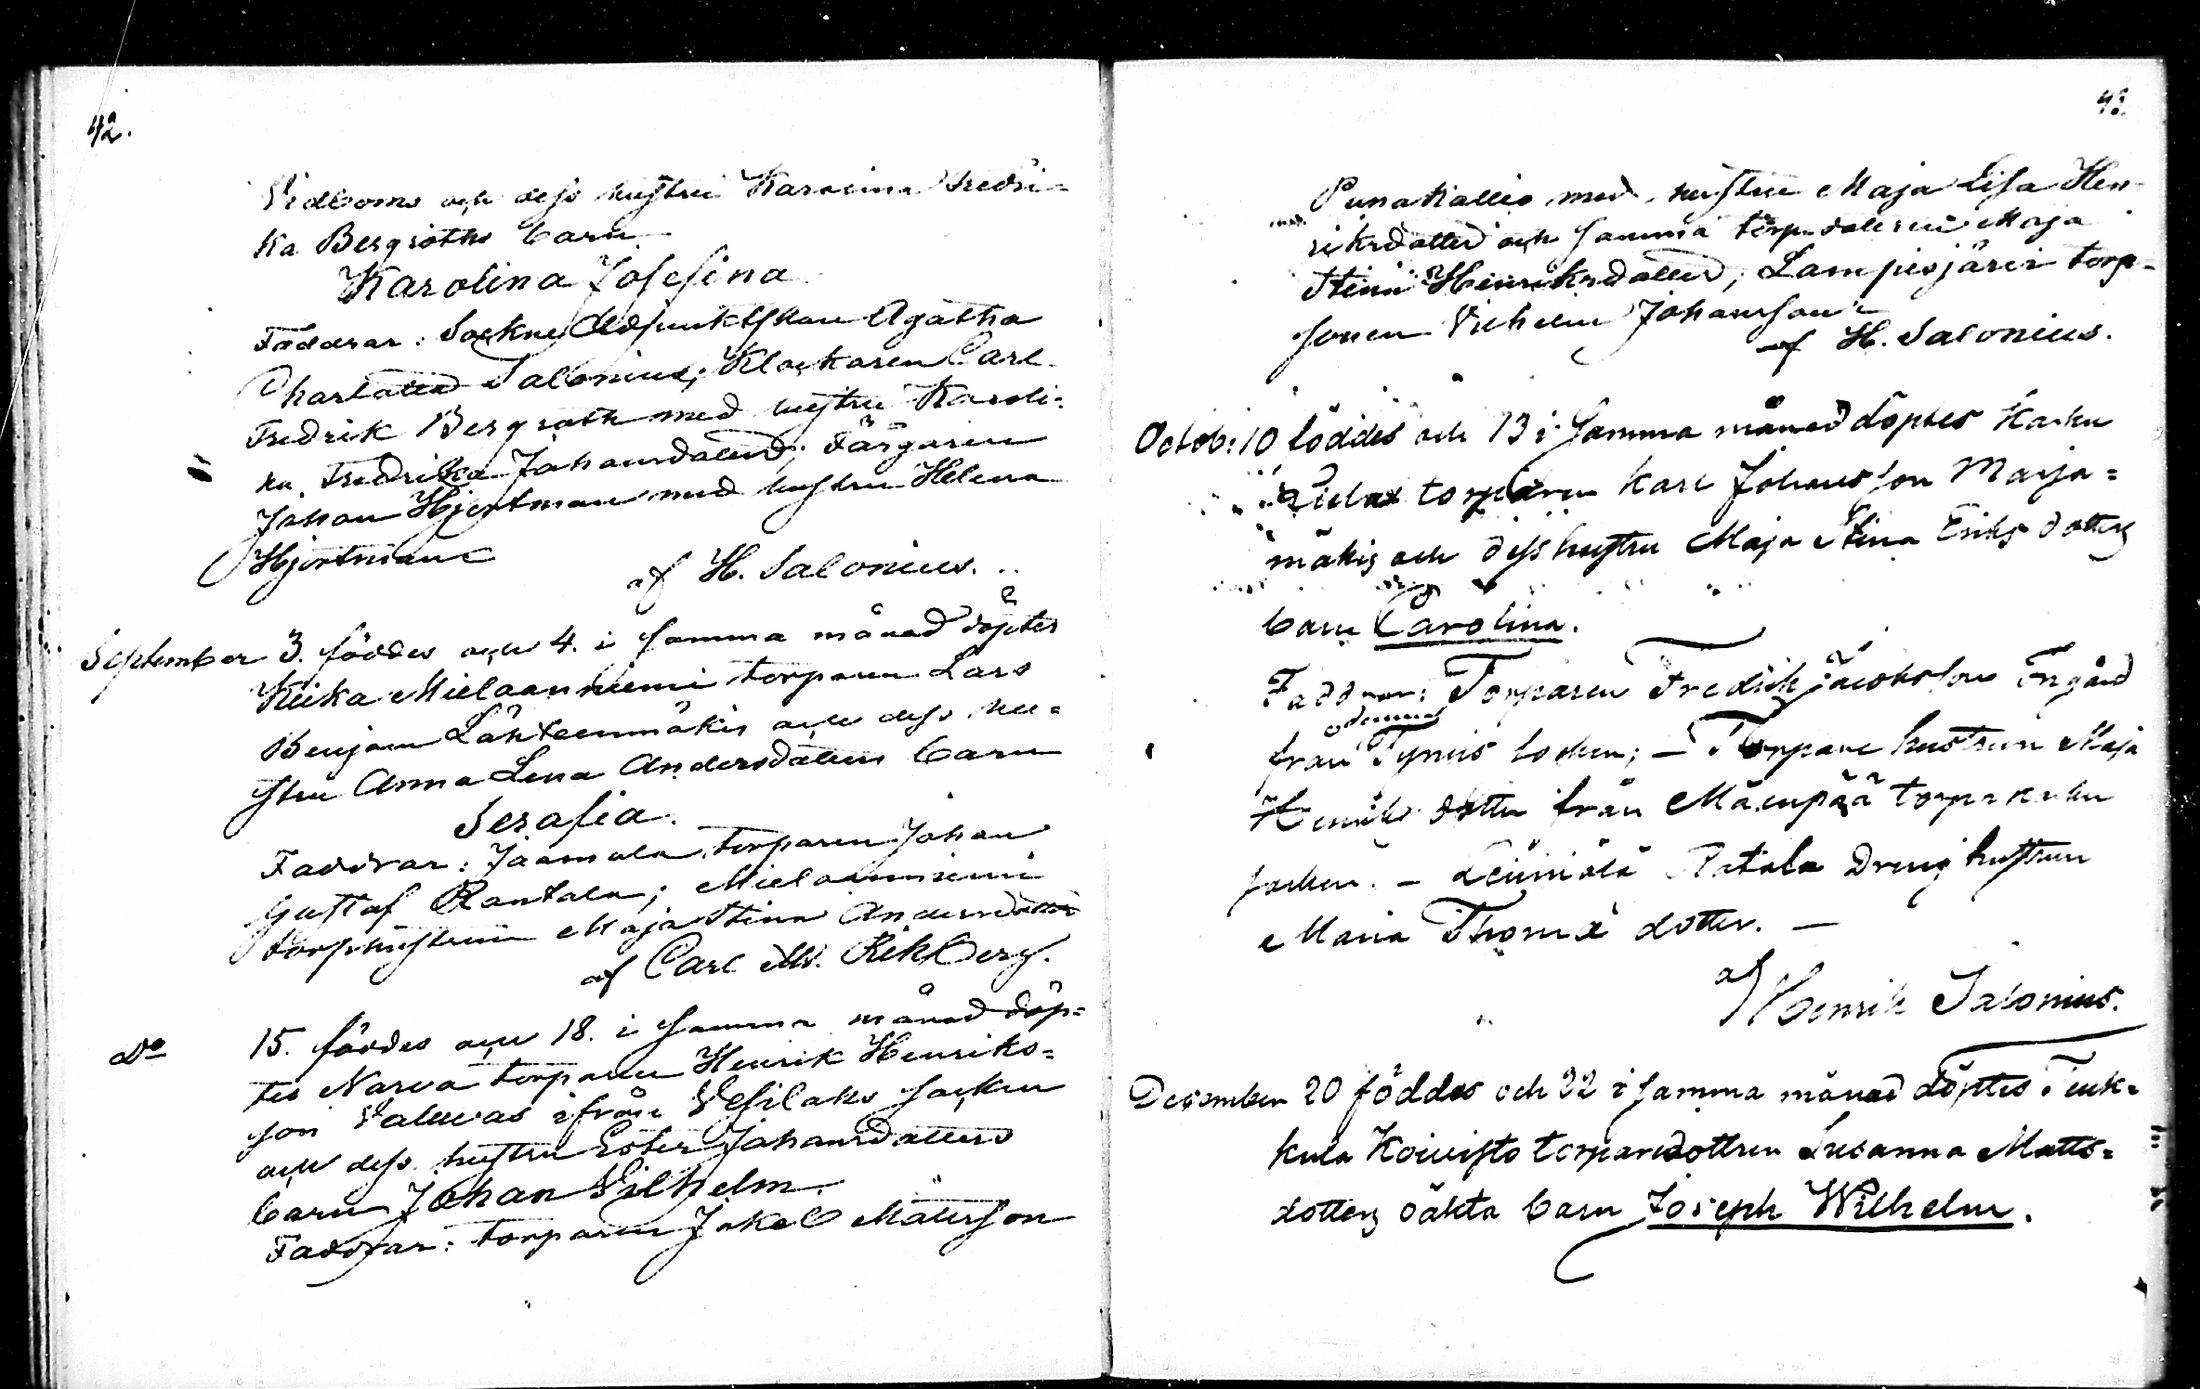 42.
Vidboms och dess hustru Karolina Fredri-
ka Bergroths barn
Karolina Josefina
Faddrar: Sockne Adjunktskan Agatha
Charlotta Salonius; Klockaren Carl
Fredrik Bergroth med hustru Karoli-
na Fredrika Johansdotter; Färgaren
Johan Hjertman med hustru Helena
Hjertman
af H. Salonius.
September 3. föddes och 4. i samma månad döptes
Kiika Mielaanniemi torparen Lars
Benjam Lähteenmäkis och dess hu-
stru Anna Lena Andersdotters barn
Serafia.
Faddrar: Jaamala torparen Johan
Gustaf Rantala; Mielaanniemi
torphustrun Maja Stina Andersdotter
af Carl M. Rikberg.
Do 15. föddes och 18. i samma månad döp-
tes Narva torparen Henrik Henriks-
son ifrån Vesilaks socken
och dess hustru Ester Johansdotters
barn Johan Vilhelm.
Faddrar: torparen Jakob Mattsson
43.
Punakallio med hustru Maja Lisa Hen-
riksdotter och samma Maja
Stina Henriksdotter, Lampisjärvi torp-
sonen Vilhelm Johansson
af H. Salonius.
Octob: 10 föddes och 13 i samma månad döptes Karku
torparen Karl Johansson Marja-
mäkis och dess hustru Maja Stina Eriksdotters
barn Carolina.
Faddrar: Torparen Fredrik Jacobsson
från Tyrvis socken; – Torpare hustrun Maja
Henriks dotter från Mäenpää torp Karku
socken. – Ratala Dreng hustrun
Maria Thomæ dotter. –
af Henrik Salonius.
December 20 föddes och 22 i samma månad döptes
kula Koivisto torparedottren Susanna Matts-
dotters oäkta barn Joseph Wilhelm.